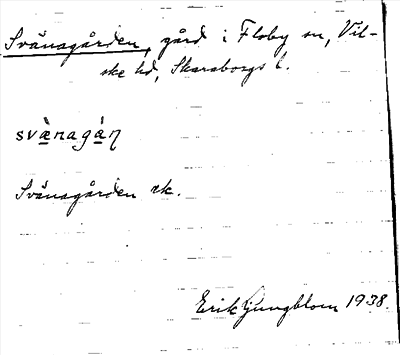 Svänagården, gård i Floby sn, Vil-
ske hd, Skaraborgs l.
svä̀nagȧ́ṇ
Svänagården rk.
Erik Ljungblom 1938.